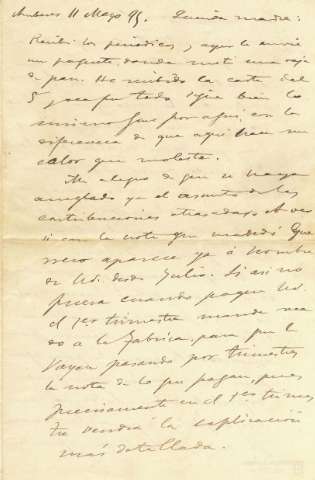 Amberes 11 Mayo 95. Querida madre:
Recibí los periódicos, y ayer le envié
un paquete, donde metí una caja
de pan. He recibido la carta del
5, y sea por todo. Sigue bien lo
mismo que por aquí, con la
diferencia de que aquí hace un
calor que molesta.
Me alegro de que se haya
arreglado ya el asunto de las
contribuciones atrasadas. A ver
si con la nota que mandó
nero aparece ya á nombre
de Ud. desde Julio. Si así no
fuera cuando pague Ud.
el 1er trimestre mande
á la fábrica, para que le
vayan pasando por trimestres
la nota de lo que pagan, pues
precisamente en el 1er trimes
tre vendrá la esplicación
más detallada.